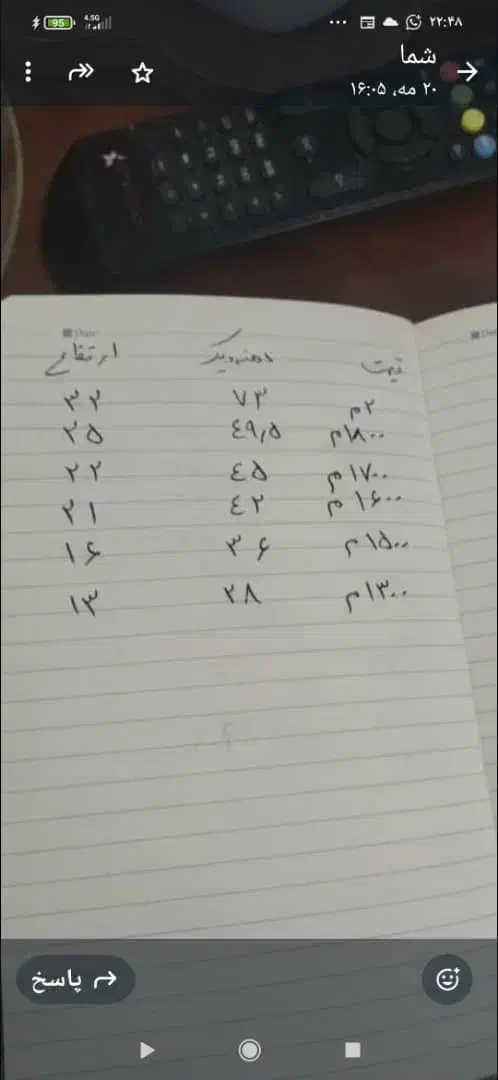 ۲۲:۴۸ ... 4.5G 95
شما
۲۰ مه، ۱۶:۰۵
Date
قیمت دهنه دیگ ارتفاع
۲م ۷۳ ۳۲
۱۸۰۰م ٤۹٫۵ ۲۵
۱۷۰۰م ٤۵ ۲۲
۱۶۰۰م ٤۲ ۲۱
۱۵۰۰م ۳۶ ۱۶
۱۳۰۰م ۲۸ ۱۳
پاسخ